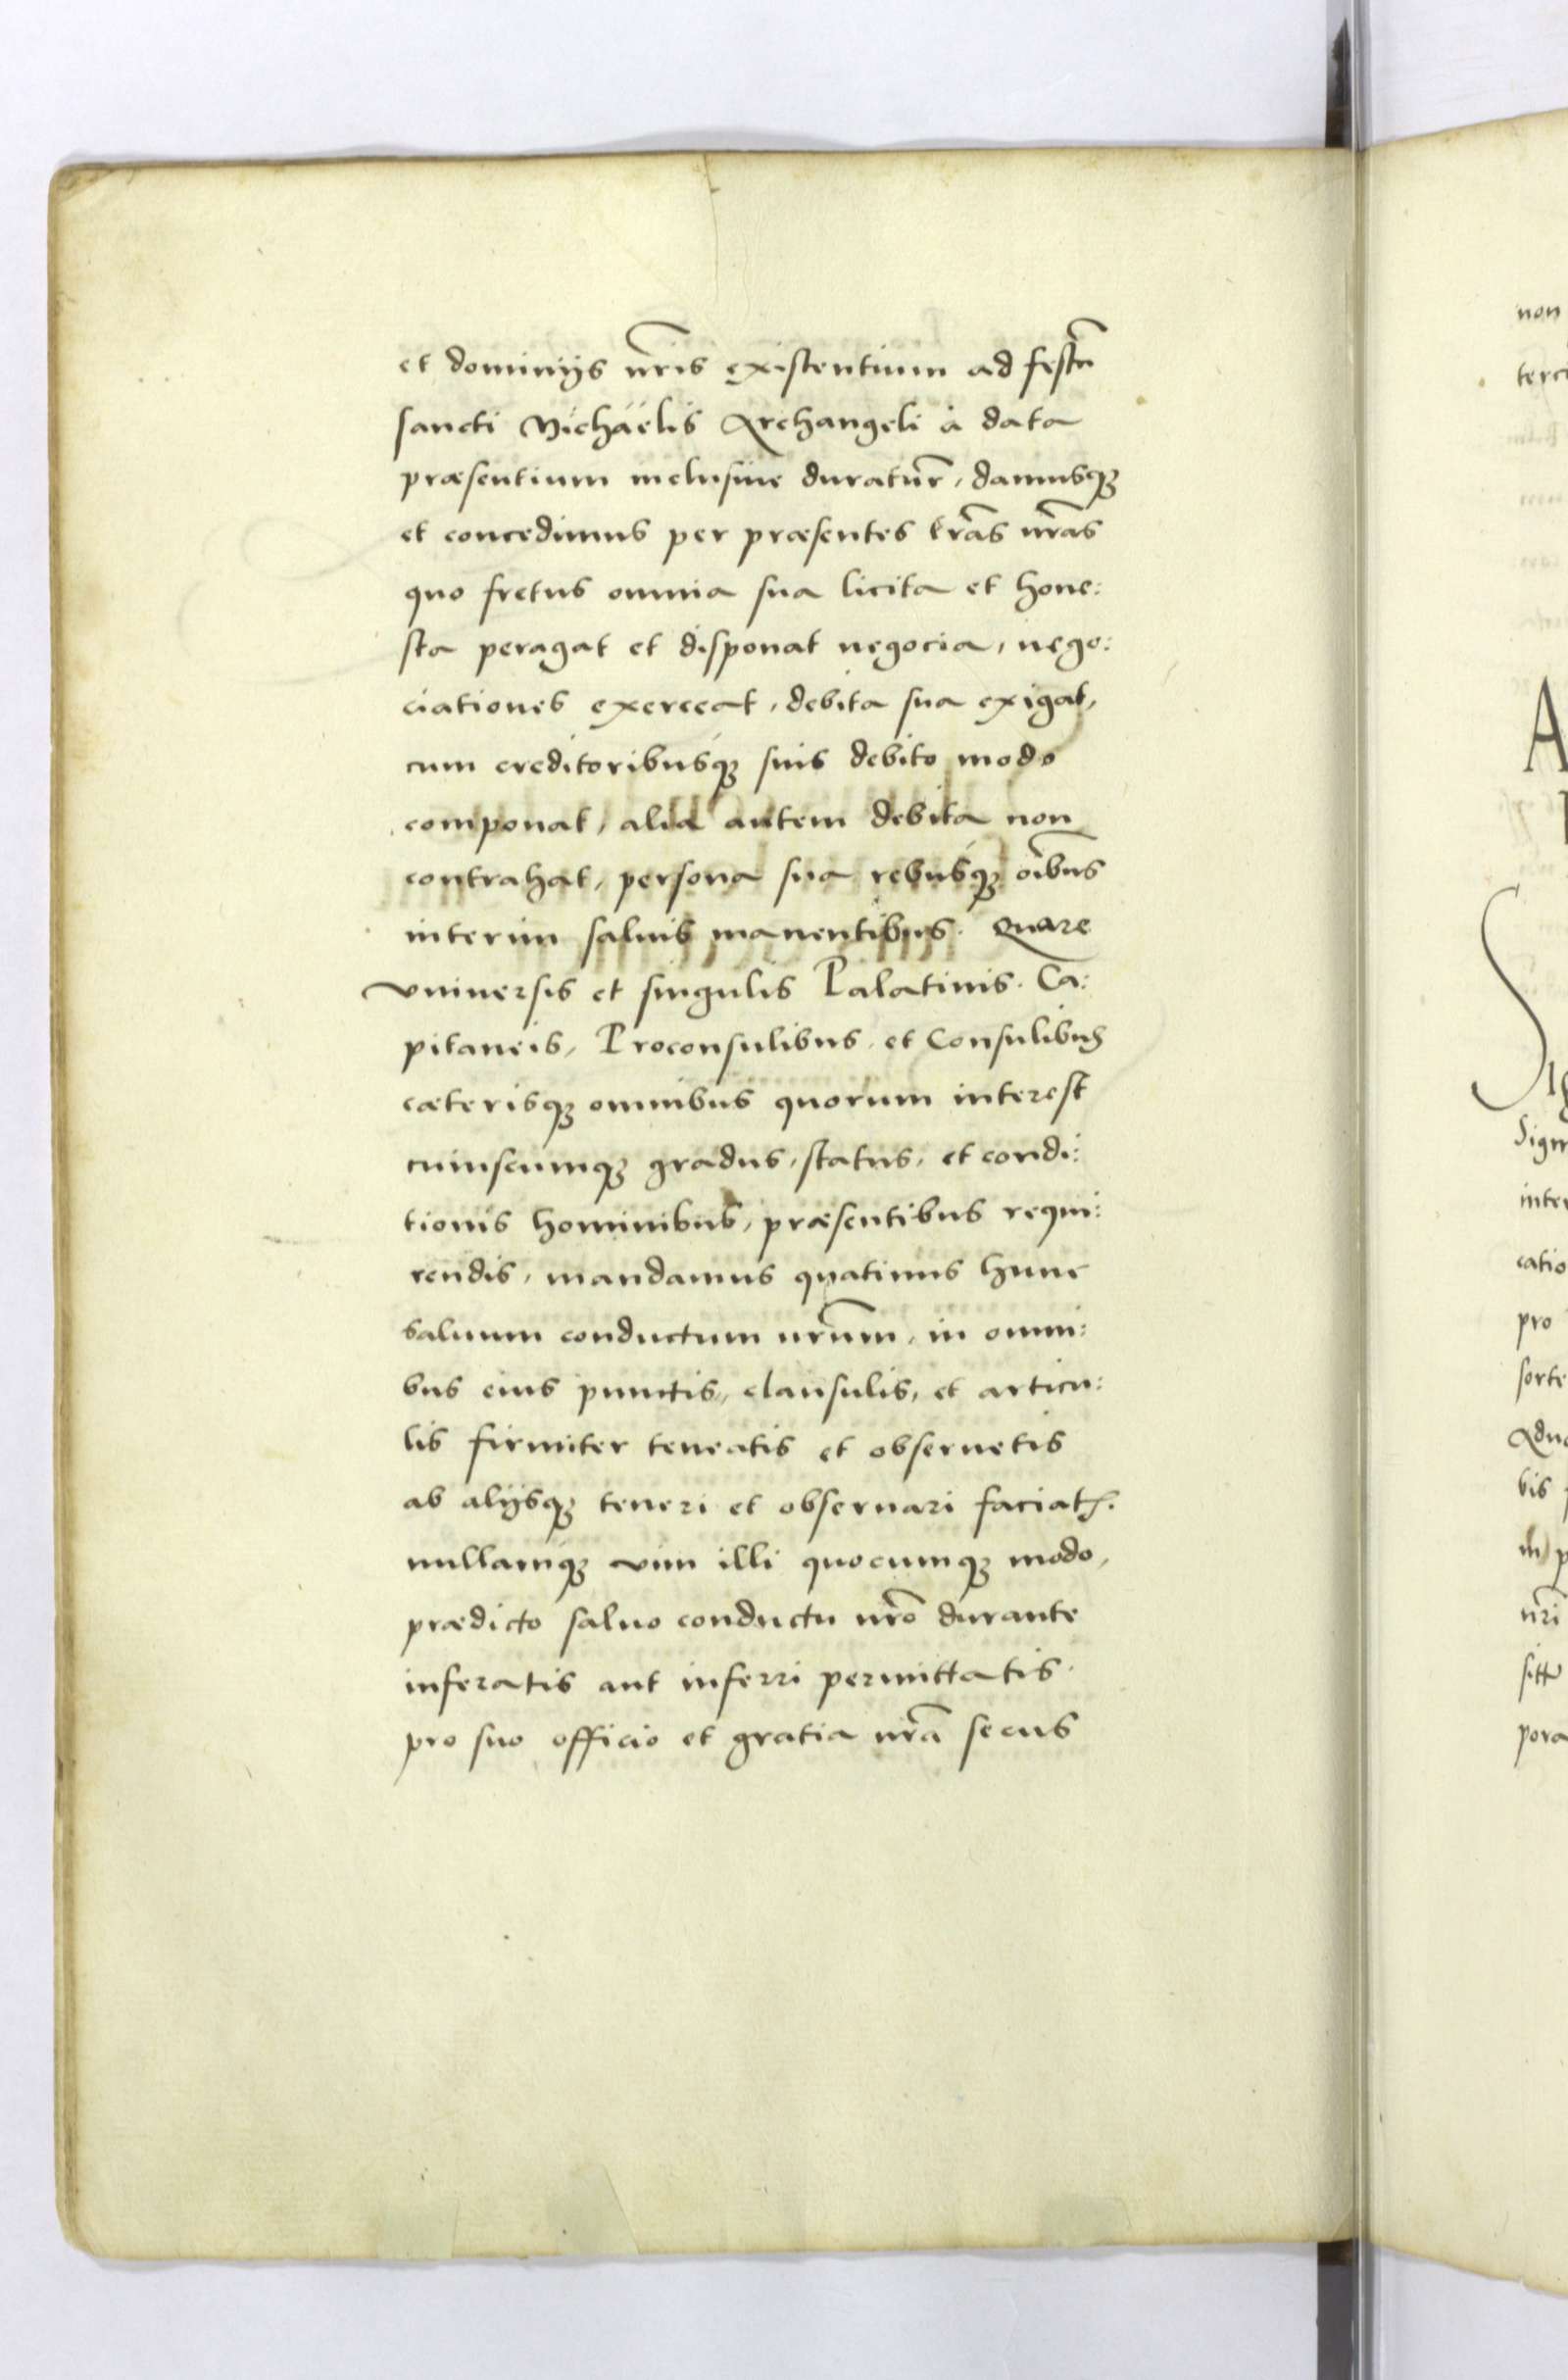 et dominijs nr̃is existentium ad festũ
sancti Michaëlis Archangeli à data
præsentium inclusiue duratur̃, damusq₃
et concedimus per præsentes lr̃as nr̃as
quo fretus omnia sua licita et hone:
sta peragat et disponat negocia, nego:
ciationes exerceat, debita sua exigat,
cum creditoribusq₃ suis debito modo
componat, alia autem debita non
contrahat, persona sua rebusq₃ oĩbus
interim saluis manentibus. Quare
vniuersis et singulis Palatinis. Ca:
pitaneis, Proconsulibus, et Consulibus
cæterisq₃ omnibus quorum interest
cuiuscumq₃ gradus, status, et condi:
tionis hominibus, præsentibus requi:
rendis, mandamus quatinus hunc
saluum conductum nr̃um, in omni:
bus eius punctis, clausulis, et articu:
lis firmiter teneatis et obseruetis
ab alijsq₃ teneri et obseruari faciatꝭ.
nullamq₃ vim illi quocumq₃ modo,
prædicto saluo conductu nr̃o durante
inferatis aut inferri permittatis.
pro suo officio et gratia nr̃a secus
non
A
pro